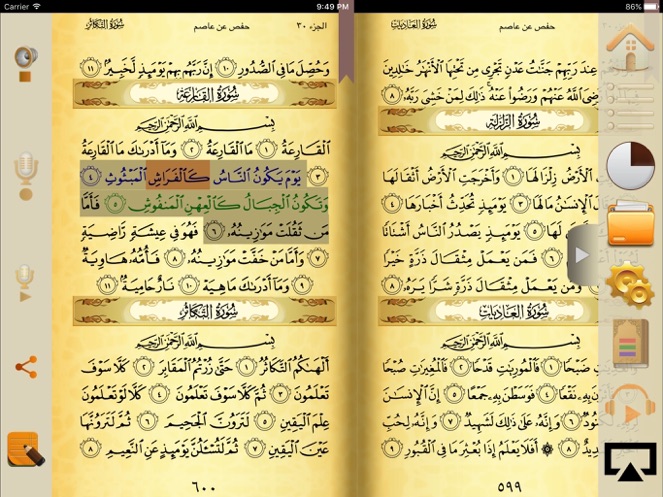 Carrier 9:49 PM 86%
سُورَةُ العَادِيَاتِ حفص عن عاصم
عِندَ رَبِّهِمْ جَنَّٰتُ عَدْنٍ تَجْرِى مِن تَحْتِهَا ٱلْأَنْهَٰرُ خَٰلِدِينَ
ٱللَّهُ عَنْهُمْ وَرَضُوا۟ عَنْهُ ذَٰلِكَ لِمَنْ خَشِىَ رَبَّهُۥ ٨
سُورَةُ الزَّلْزَلَةِ
بِسْمِ ٱللَّهِ ٱلرَّحْمَٰنِ ٱلرَّحِيمِ
ٱلْأَرْضُ زِلْزَالَهَا ١ وَأَخْرَجَتِ ٱلْأَرْضُ أَثْقَالَهَا
ٱلْإِنسَٰنُ مَا لَهَا ٣ يَوْمَئِذٍ تُحَدِّثُ أَخْبَارَهَا ٤
لَهَا ٥ يَوْمَئِذٍ يَصْدُرُ ٱلنَّاسُ أَشْتَاتًا
٦ فَمَن يَعْمَلْ مِثْقَالَ ذَرَّةٍ خَيْرًا
وَمَن يَعْمَلْ مِثْقَالَ ذَرَّةٍ شَرًّا يَرَهُۥ ٨
سُورَةُ العَادِيَاتِ
بِسْمِ ٱللَّهِ ٱلرَّحْمَٰنِ ٱلرَّحِيمِ
ضَبْحًا ١ فَٱلْمُورِيَٰتِ قَدْحًا ٢ فَٱلْمُغِيرَٰتِ صُبْحًا
بِهِۦ نَقْعًا ٤ فَوَسَطْنَ بِهِۦ جَمْعًا ٥ إِنَّ ٱلْإِنسَٰنَ
٦ وَإِنَّهُۥ عَلَىٰ ذَٰلِكَ لَشَهِيدٌ ٧ وَإِنَّهُۥ لِحُبِّ
٨ ۞ أَفَلَا يَعْلَمُ إِذَا بُعْثِرَ مَا فِى ٱلْقُبُورِ ٩
٥٩٩
سُورَةُ التَّكَاثُرِ حفص عن عاصم الجزء ٣٠
وَحُصِّلَ مَا فِى ٱلصُّدُورِ ١٠ إِنَّ رَبَّهُم بِهِمْ يَوْمَئِذٍ لَّخَبِيرٌۢ ١١
سُورَةُ القَارِعَةِ
بِسْمِ ٱللَّهِ ٱلرَّحْمَٰنِ ٱلرَّحِيمِ
ٱلْقَارِعَةُ ١ مَا ٱلْقَارِعَةُ ٢ وَمَآ أَدْرَىٰكَ مَا ٱلْقَارِعَةُ
٣ يَوْمَ يَكُونُ ٱلنَّاسُ كَٱلْفَرَاشِ ٱلْمَبْثُوثِ ٤
وَتَكُونُ ٱلْجِبَالُ كَٱلْعِهْنِ ٱلْمَنفُوشِ ٥ فَأَمَّا
مَن ثَقُلَتْ مَوَٰزِينُهُۥ ٦ فَهُوَ فِى عِيشَةٍ رَّاضِيَةٍ
٧ وَأَمَّا مَنْ خَفَّتْ مَوَٰزِينُهُۥ ٨ فَأُمُّهُۥ هَاوِيَةٌ
٩ وَمَآ أَدْرَىٰكَ مَا هِيَهْ ١٠ نَارٌ حَامِيَةٌۢ ١١
سُورَةُ التَّكَاثُرِ
بِسْمِ ٱللَّهِ ٱلرَّحْمَٰنِ ٱلرَّحِيمِ
أَلْهَىٰكُمُ ٱلتَّكَاثُرُ ١ حَتَّىٰ زُرْتُمُ ٱلْمَقَابِرَ ٢ كَلَّا سَوْفَ
تَعْلَمُونَ ٣ ثُمَّ كَلَّا سَوْفَ تَعْلَمُونَ ٤ كَلَّا لَوْ تَعْلَمُونَ
عِلْمَ ٱلْيَقِينِ ٥ لَتَرَوُنَّ ٱلْجَحِيمَ ٦ ثُمَّ لَتَرَوُنَّهَا
عَيْنَ ٱلْيَقِينِ ٧ ثُمَّ لَتُسْـَٔلُنَّ يَوْمَئِذٍ عَنِ ٱلنَّعِيمِ ٨
٦٠٠